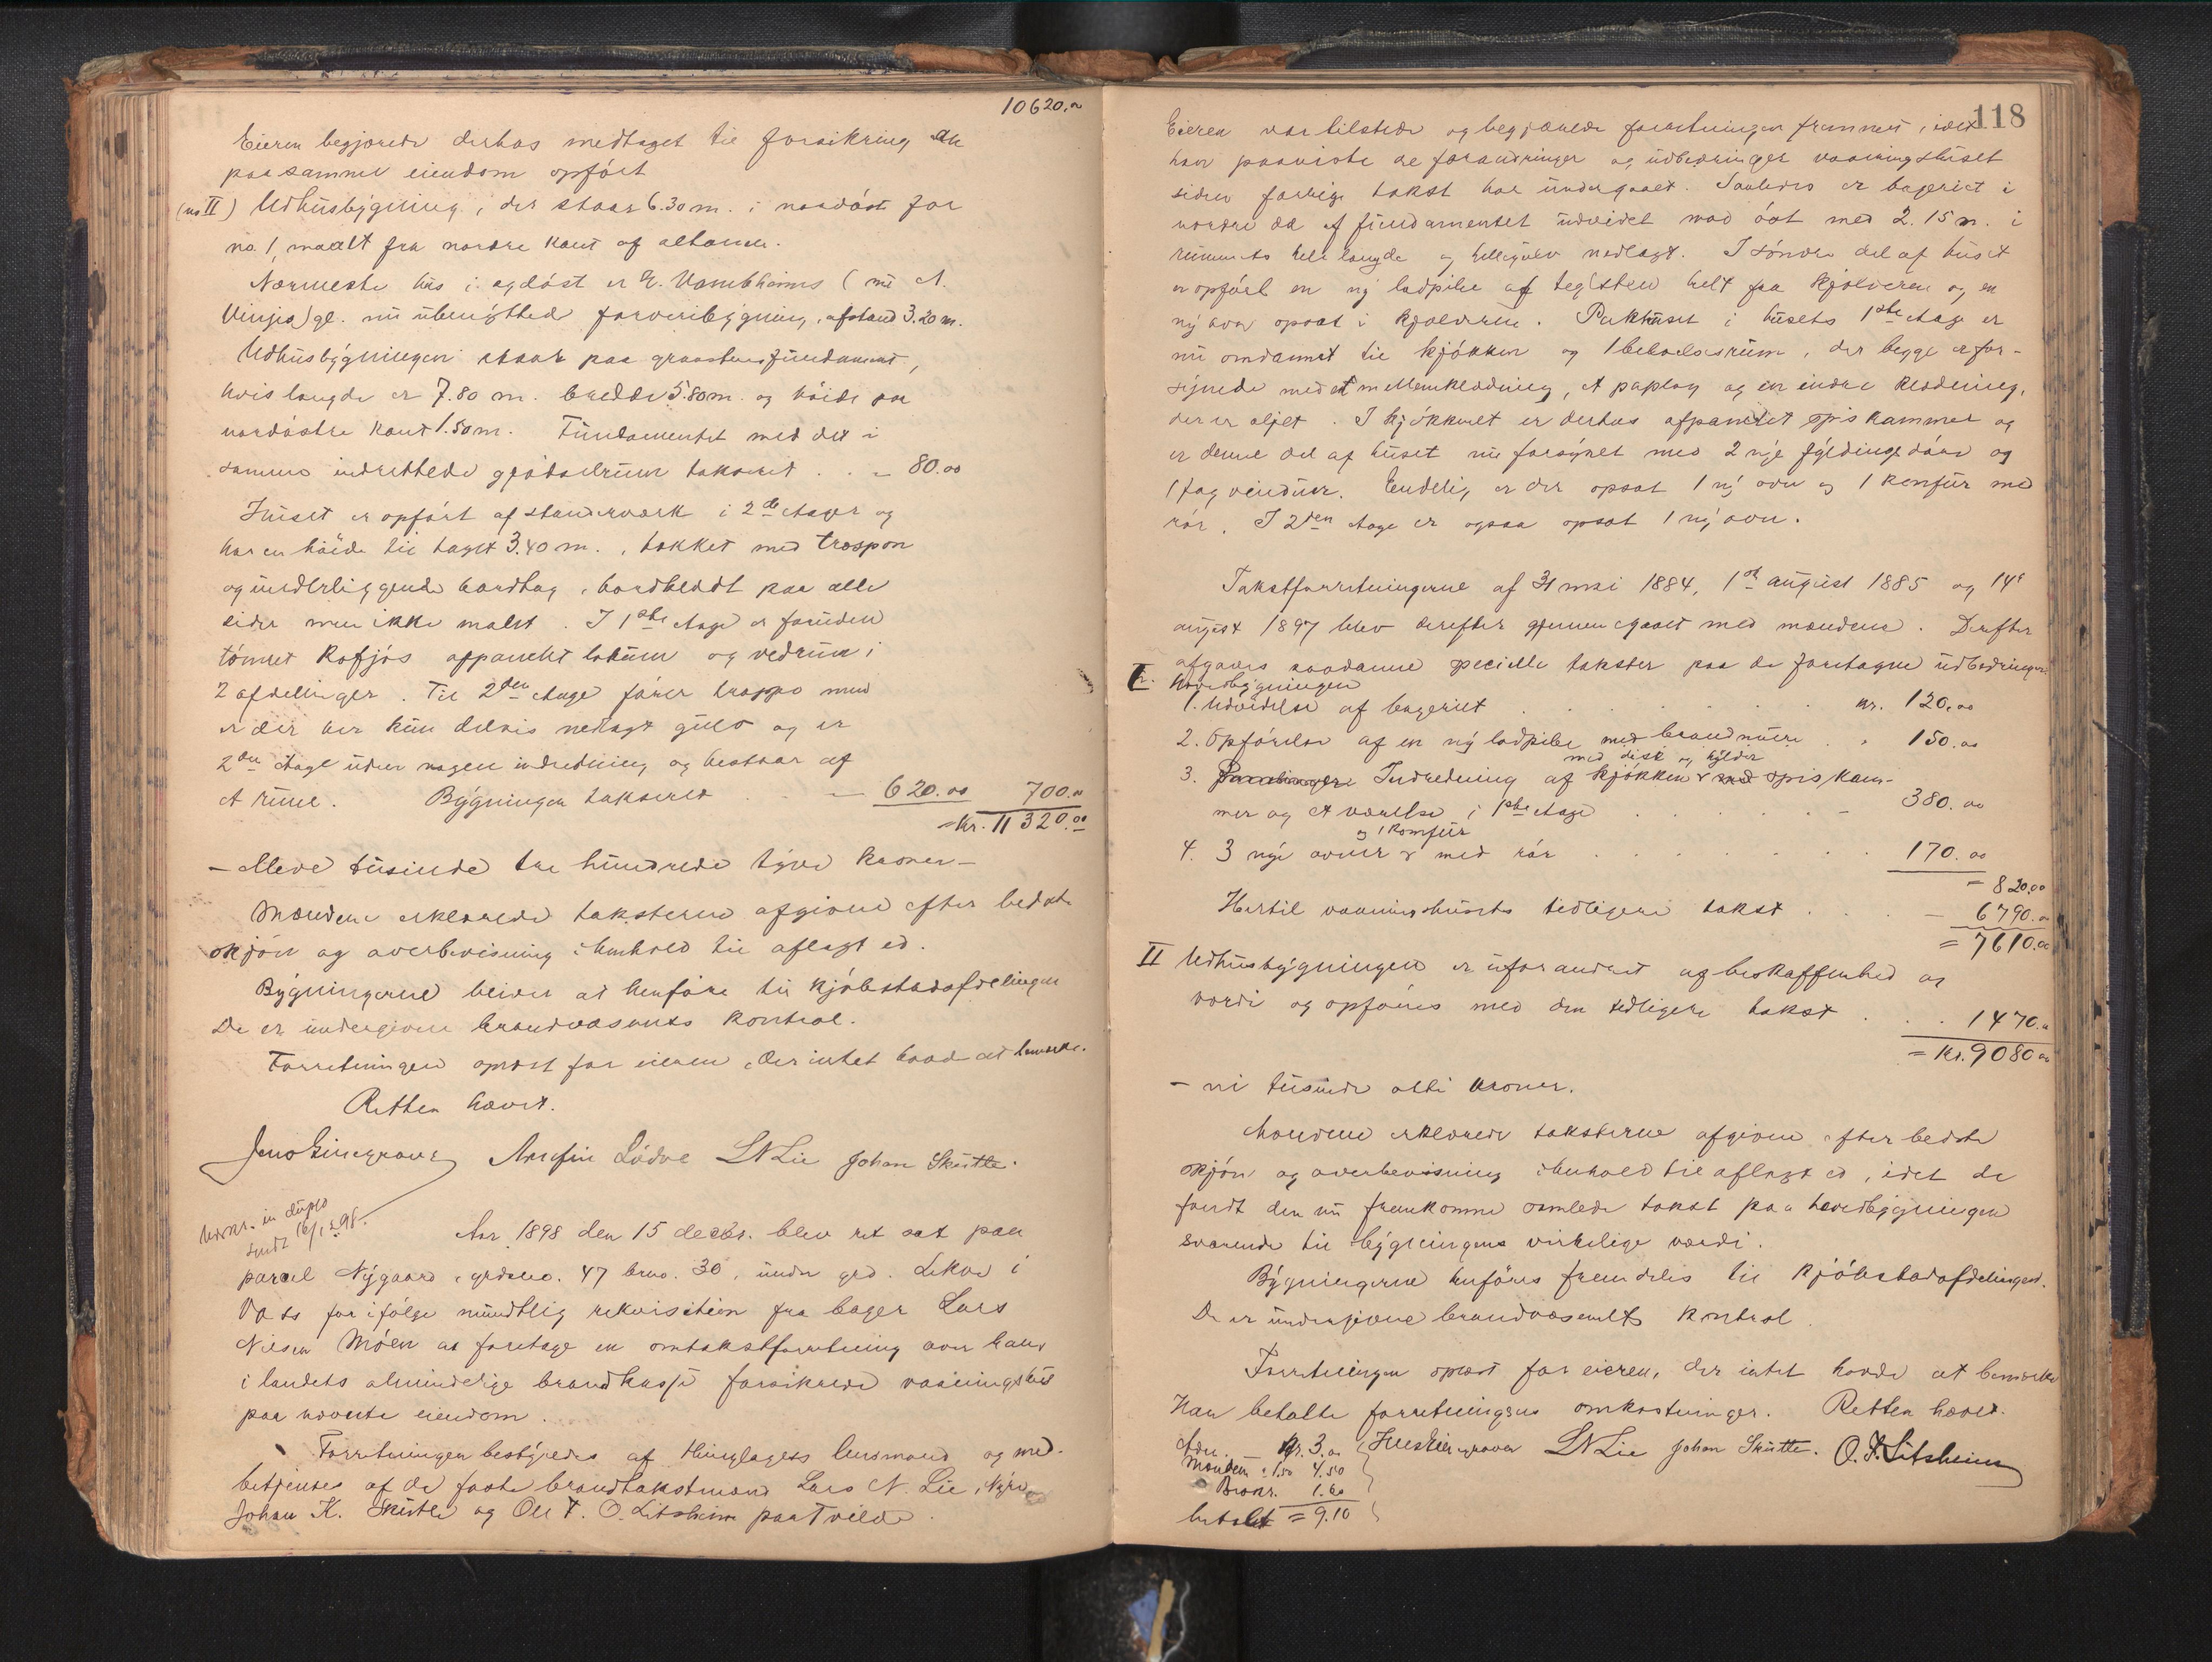 10620.00
Eieren begjærede derhos medtaget til forsikring en
paa samme eiendom opført
(no II) Udhusbygning, der staar 6.30 m. i nordøst for
no. 1, maalt fra nordre kant af altanen.
Nærmeste hus i sydøst er
Vinjes) gl. nu ubenyttede farveribygning, afstand 3.20 m.
Udhusbygningen staar paa graastensfundament,
hvis længde er 7.80 m. bredde 5.80 m. og høide paa
nordøstre kant 1.50 m. Fundamentet med det i
samme indrettede gjødselrum takseret . . - 80.00
Huset er opført af stenderværk i 2de etager og
har en høide til taget 3.40 m., tækket med træspon
og underliggende bordtag, bordklædt paa alle
sider men ikke malet. I 1ste etage er foruden
tømret kofjøs afpanelet lokum og vedrum i
2 afdelinger. Til 2den etage fører trappe men
er der her kun delvis nedlagt gulv og er
2den etage uden nogen indredning og bestaar af
et rum. Bygningen takseret - 620.00 700.00
= Kr. 11320.00
- Elleve tusinde tre hundrede tyve kroner -
Mændene erklærede taksterne afgivne efter bedste
skjøn og overbevisning i henhold til aflagt ed.
Bygningerne bliver at henføre til kjøbstadafdelingen
De er undergivne brandvæsenets kontrol.
Forretningen oplæst for eieren, der intet havde at bemærke.
Retten hævet.
Arnfin Lødve LNLie Johan Skutle.
Udskr. in duplo
sendt 16/12 98.
Aar 1898 den 15 decbr. blev ret sat paa
parcel Nygaard, grdsno. 47 brno. 30, under grd. Lekve i
Voss for ifølge mundtlig rekvisition fra bager Lars
Nilsen Møen at foretage en omtakstforretning over hans
i landets almindelige brandkasse forsikrede vaaningshus
paa nævnte eiendom.
Forretningen bestyredes af thinglagets lensmand og med-
betjentes af de faste brandtakstmænd Lars N. Lie,
Johan K. Skutle og Ole T. O. Litsheim paa Tvilde.
118
Eieren var tilstede og begjærede forretningen fremmet, idet
han paaviste de forandringer og udbedringer vaaningshuset
siden forrige takst har undergaaet. Saaledes er bageriet i
nordre del af fundamentet udvidet mod øst med 2.15 m. i
rummets hele længde og hellegulv nedlagt. I søndre del af huset
er opført en ny ladpibe af teglsten helt fra kjælderen og en
ny ovn opsat i kjælderen. Pakhuset i husets 1ste etage er
nu omdannet til kjøkken og 1 beboelsesrum, der begge er for-
synede med et mellemklædning, et paplag og en indre klædning,
der er oljet. I kjøkkenet er derhos afpanelet spiskammer og
er denne del af huset nu forsynet med 2 nye fyldingsdøre og
1 fag vinduer. Endelig er der opsat 1 ny ovn og 1 komfur med
rør. I 2den etage er ogsaa opsat 1 ny ovn.
Takstforretningerne af 31 mai 1884, 1st august 1885 og 14de
august 1897 blev derefter gjennemgaaet med mændene. Derefter
afgaves saadanne specielle takster paa de foretagne udbedringer
I. Hovedbygningen
1. Udvidelse af bageriet . . . . . kr. 120.00
2. Opførelse af en ny ladpibe med brandmure . " 150.00
med disk og hylder
3. Indredning af kjøkken med spiskam-
mer og et værelse i 1ste etage . . . - 380.00
og 1 komfur
4. 3 nye ovner med rør . . . . . 170.00
= 820.00
Hertil vaaningshusets tidligere takst . . . - 6790.00
= 7610.00
II Udhusbygningen er uforandret af beskaffenhed og
værdi og opføres med den tidligere takst . . . 1470.00
= Kr. 9080.00
- ni tusinde otti kroner.
Mændene erklærede taksterne afgivne efter bedste
skjøn og overbevisning i henhold til aflagt ed, idet de
fandt den nu fremkomne samlede takst paa hovedbygningen
svarende til bygningens virkelige værdi.
Bygningerne henføres fremdeles til kjøbstadafdelingen.
De er undergivne brandvæsenets kontrol.
Forretningen oplæst for eieren, der intet havde at bemærke
Han betalte forretningens omkostninger. Retten hævet.
Adm. Kr. 3.00
LNLie Johan Skutle. O. T. Litsheim
Mændene à 1.50 4.50
1.60
betalt = 9.10